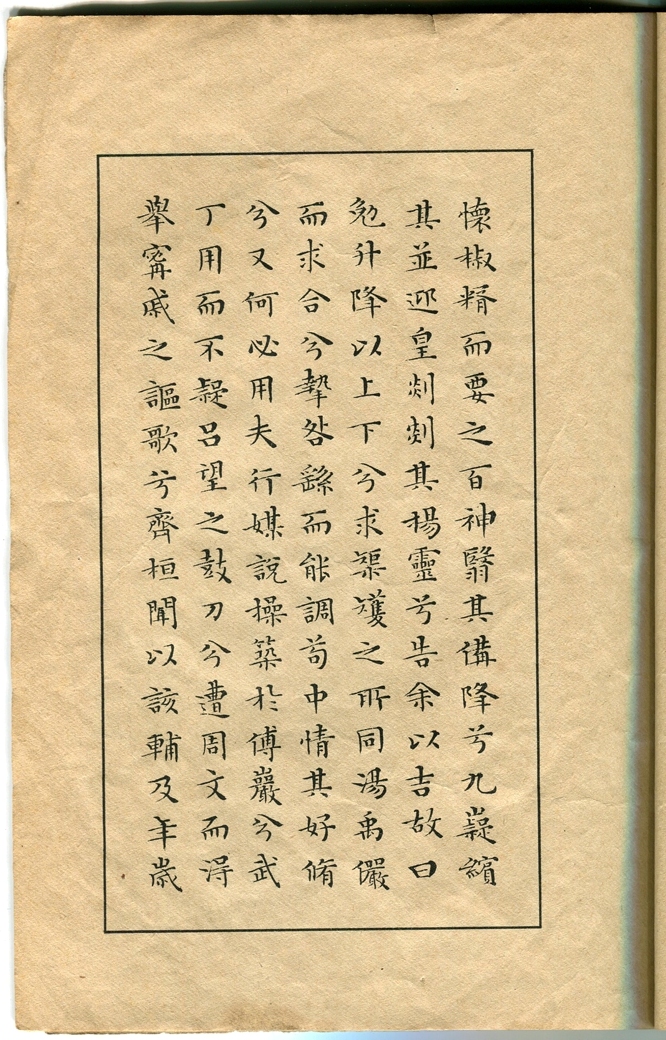 懷椒糈而要之百神翳其備降兮九嶷繽
其並迎皇剡剡其楊靈兮告余以吉故曰
勉升降以上下兮求榘矱之所同湯禹儼
而求合兮摯咎繇而能調苟中情其好脩
兮又何必用夫行媒說操築於傅巖兮武
丁用而不疑呂望之鼓刀兮遭周文而得
舉甯戚之謳歌兮齊桓聞以該輔及年歲